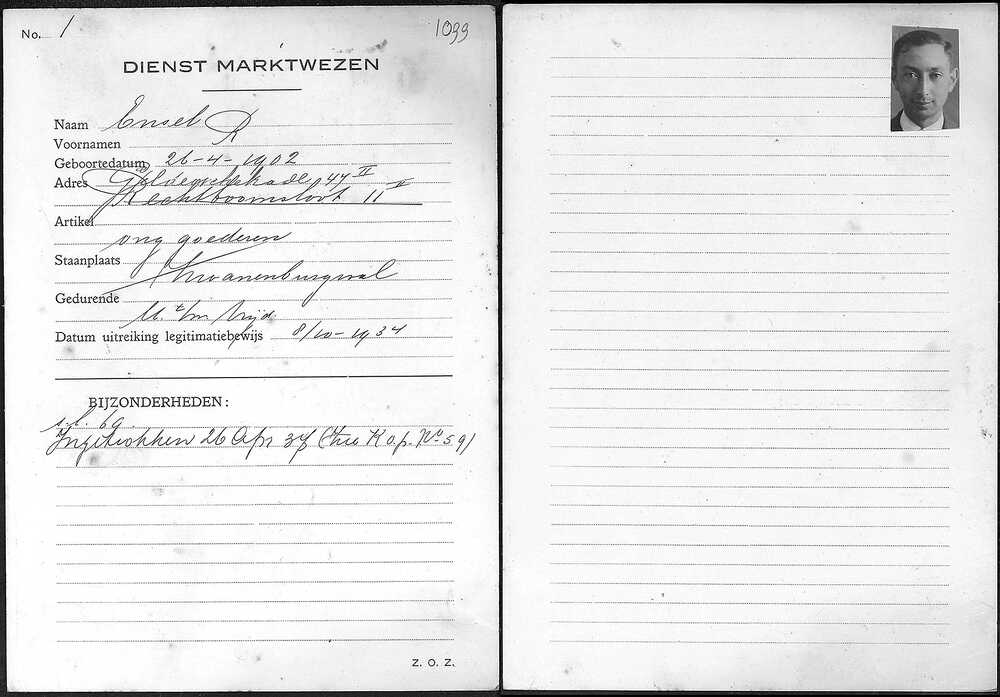 No. 1 1099
DIENST MARKTWEZEN
Naam Ensel R
Voornamen
Geboortedatum 26-4-1902
Adres 47 II
Rechtboomsloot 11 II
Artikel
ong goederen
Staanplaats
Zwanenburgwal
Gedurende
M. t/m Vrijd.
Datum uitreiking legitimatiebewijs 8/10-1934
BIJZONDERHEDEN:
Ingetrokken 26 Apr 37 (Zie K.o.p. No 59)
Z. O. Z.